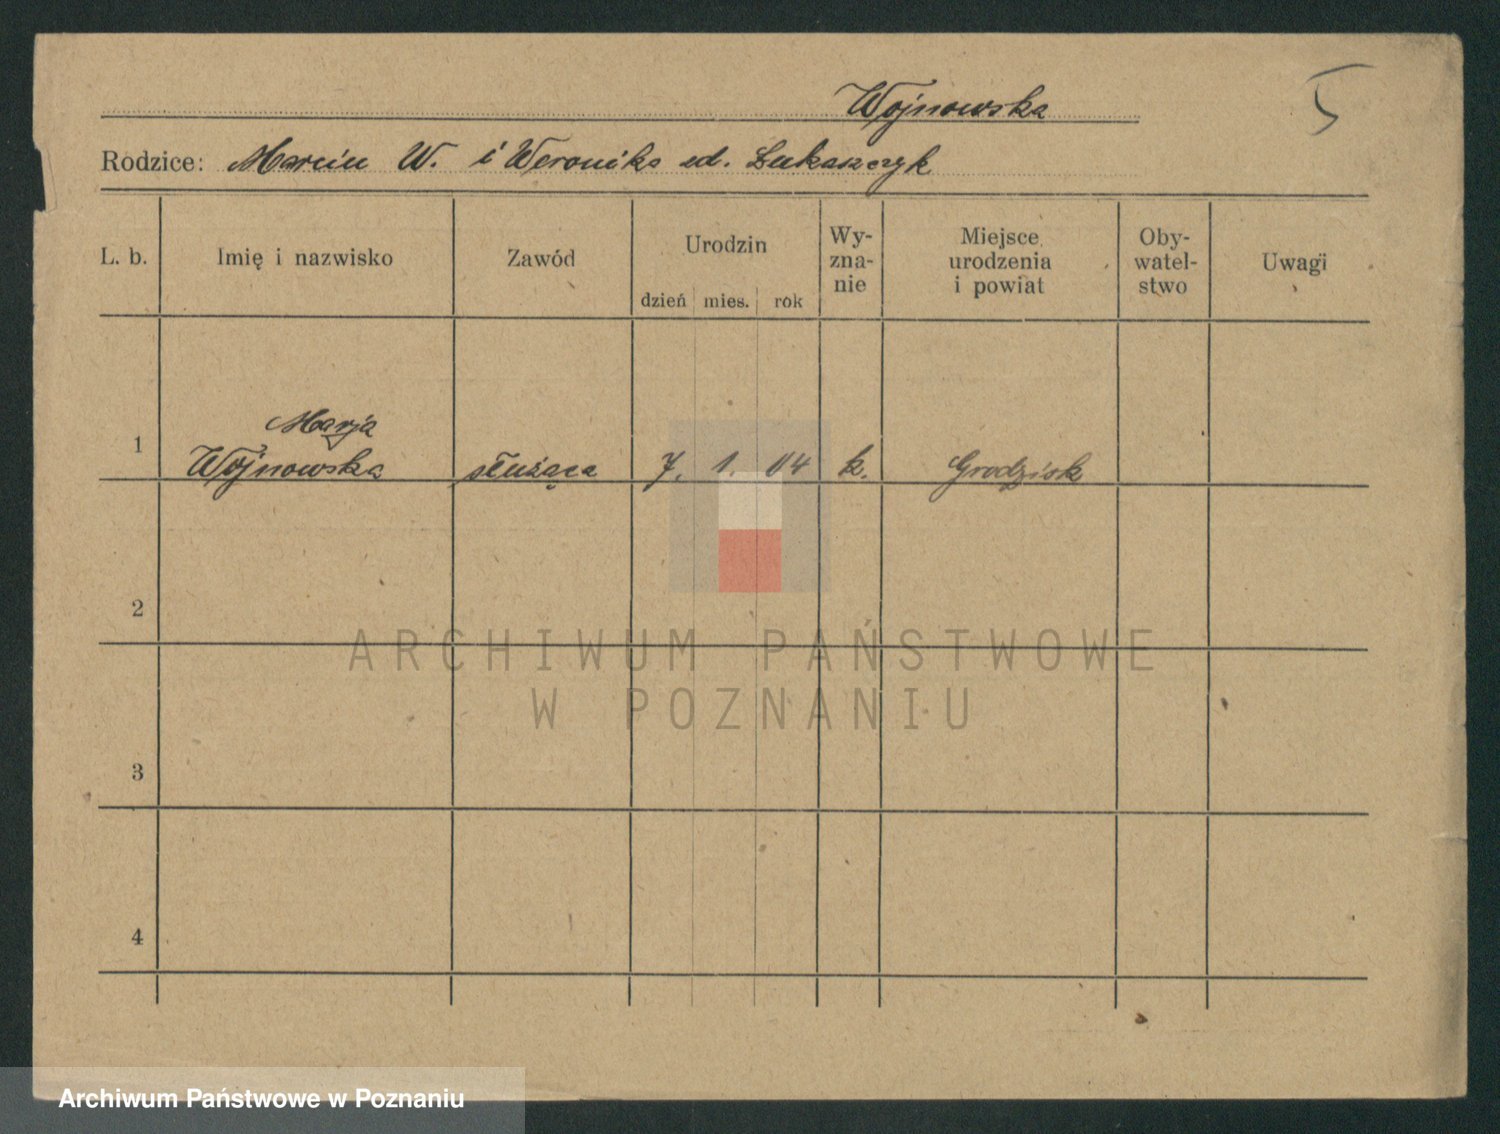 Wojnowska
Rodzice: Marcin W. i Weronika ud. Łukaszczyk
L. b. Imię i nazwisko Zawód Urodzin dzień mies. rok Wy-zna-nie Miejsce urodzenia i powiat Oby-watel-stwo Uwagi
Marja
1 Wojnowska służąca 7. 1. 04 k. Grodzisk
2
3
4
ARCHIWUM PAŃSTWOWE
W POZNANIU
Archiwum Państwowe w Poznaniu